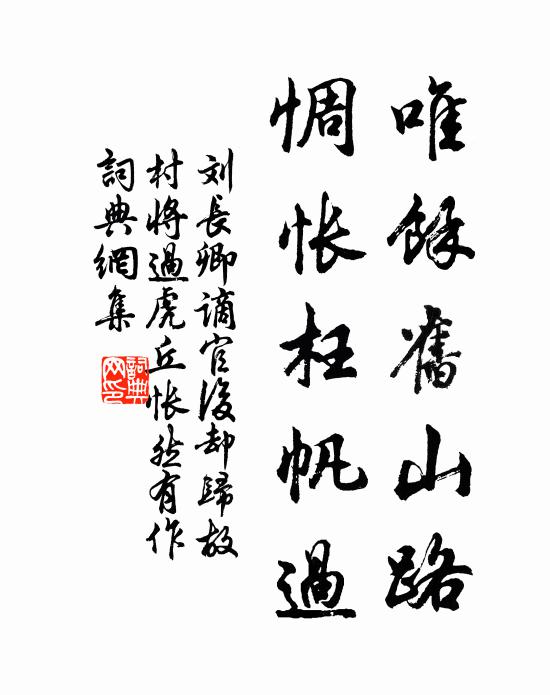 唯餘舊山路
惆怅枉帆過
刘長卿謫官後却歸故
村將過虎丘怅然有作
詞典網集
詞典
网印